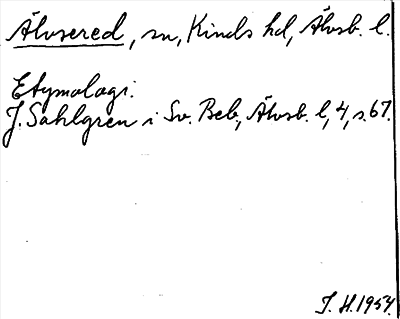 Älvsered, sn, Kinds hd, Älvsb. l.
Etymologi.
J. Sahlgren i Sv. Beb., Älvsb. l, 4, s. 67.
J. H. 1954.